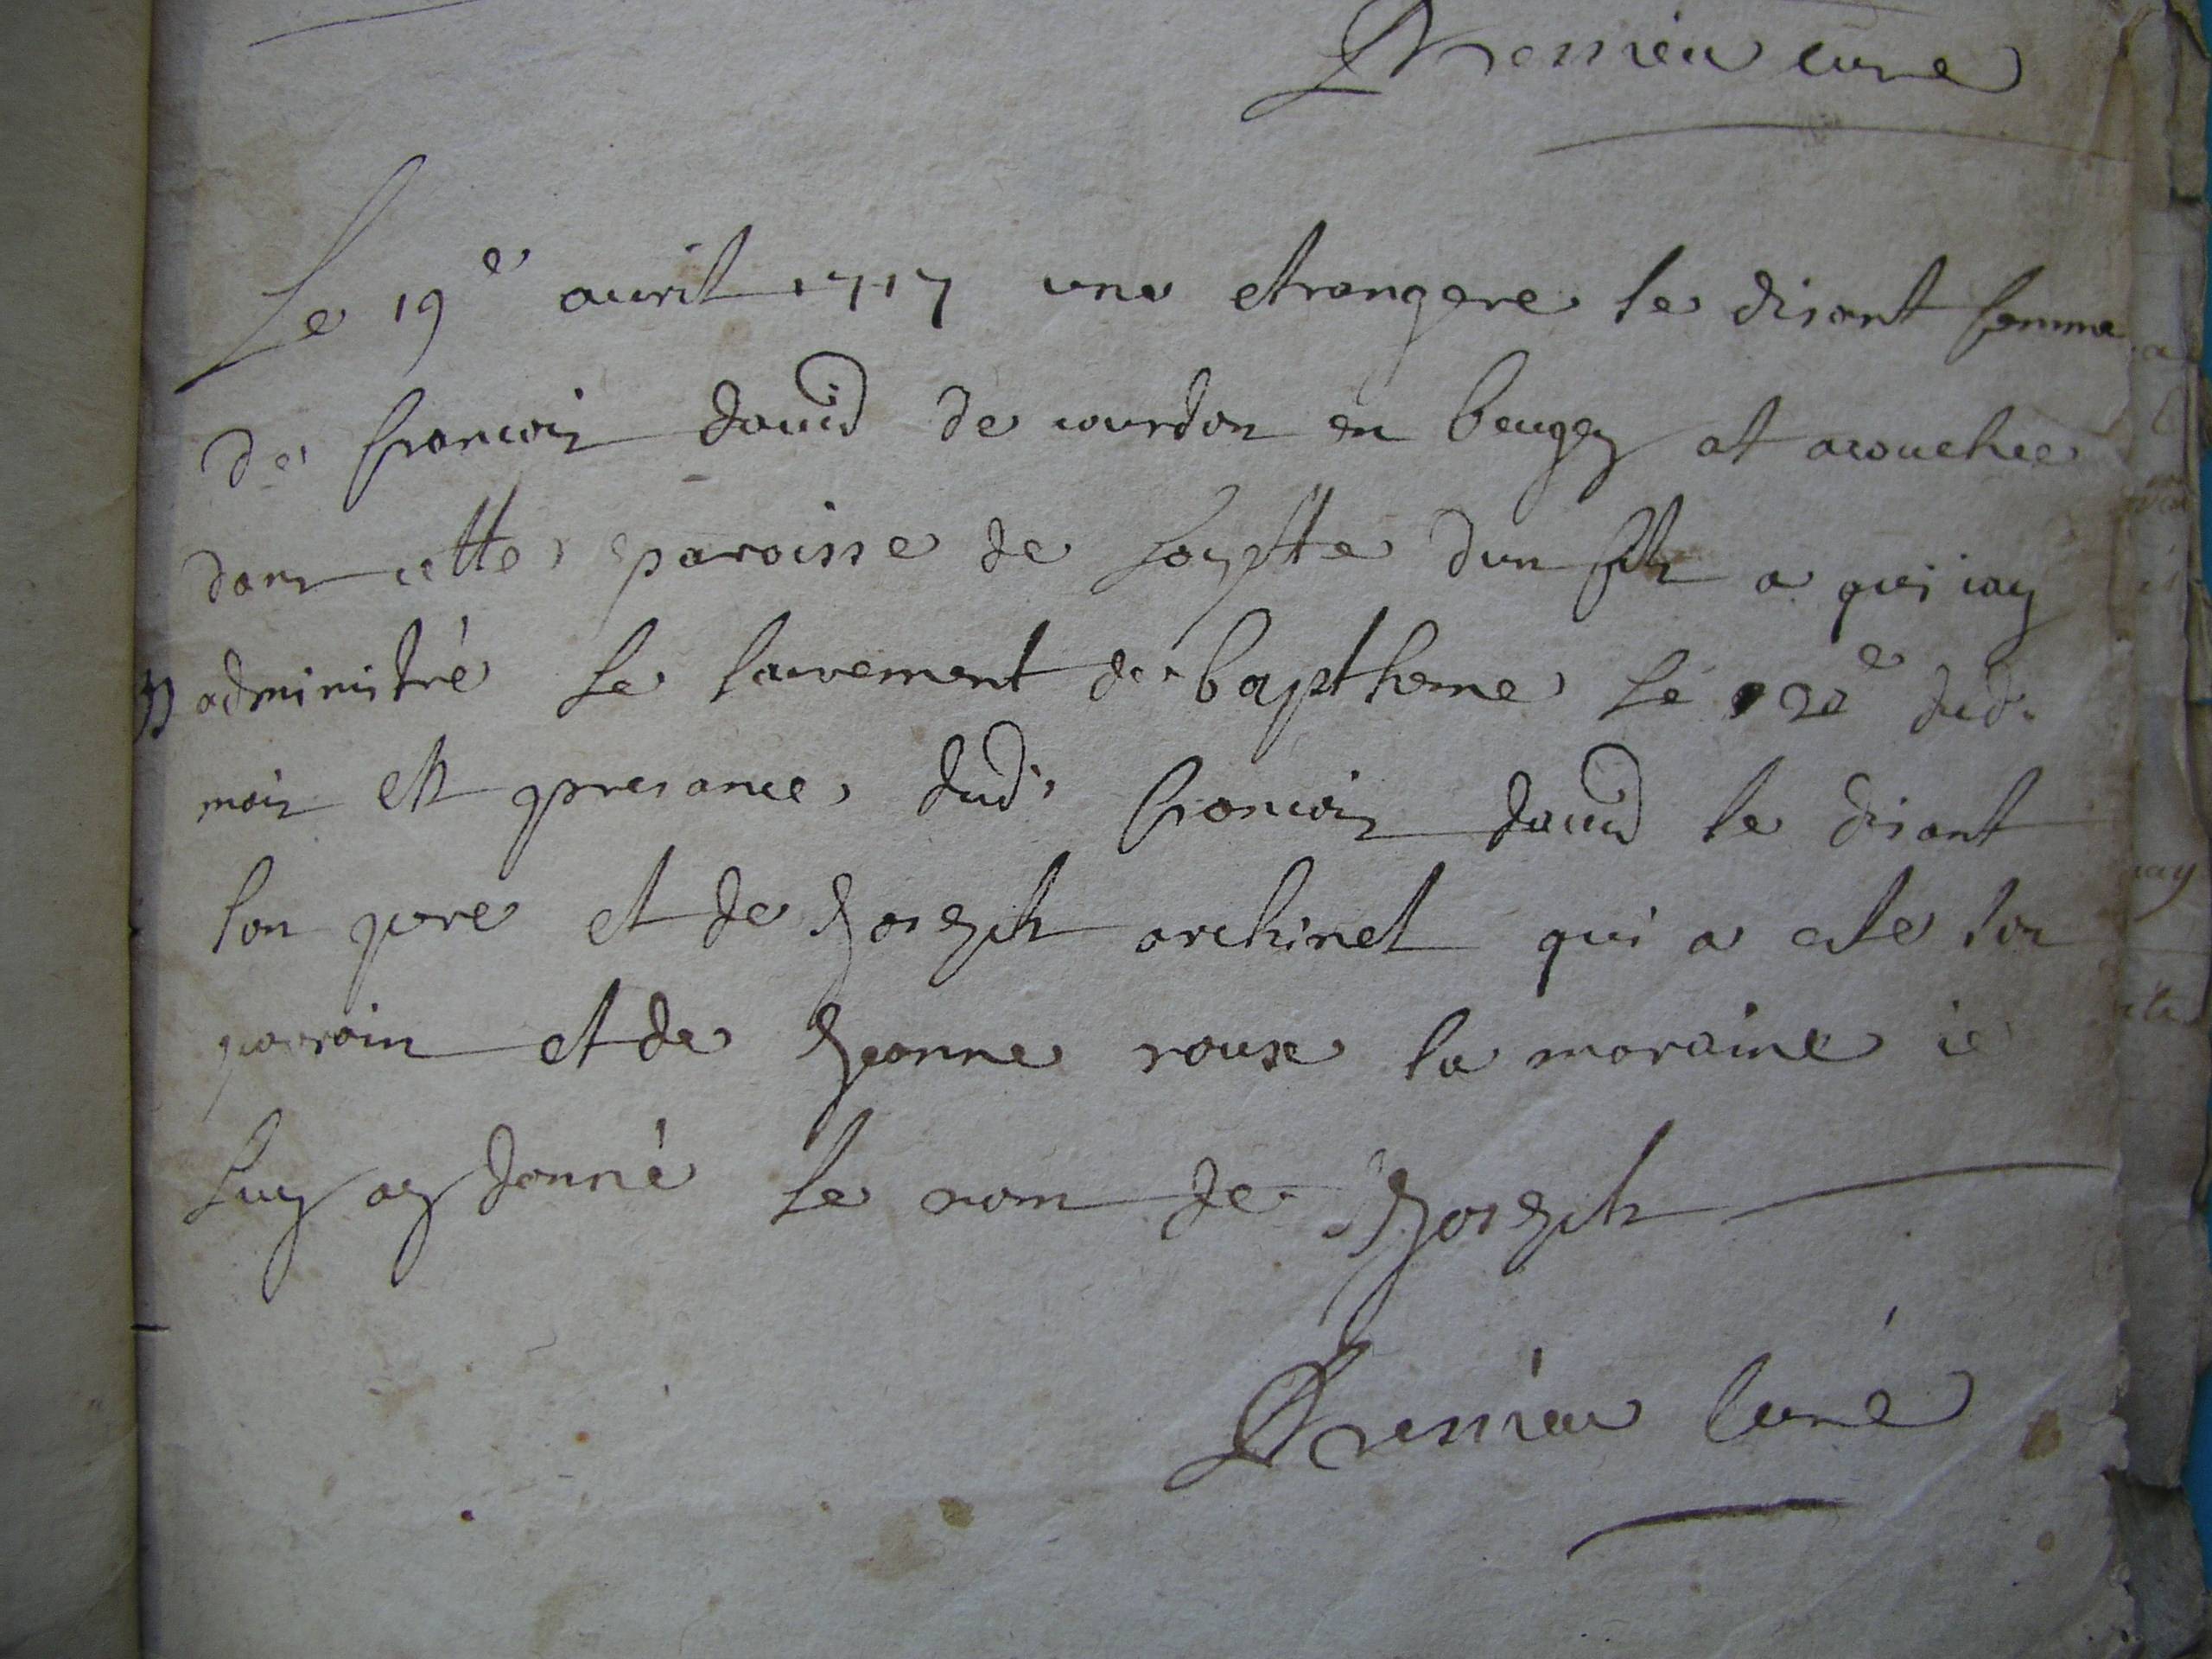 Pressieu cure
Le 19e avril 1717 une etrangere se disant femme
de francois david de courdon en beugey at acouchee
dans cette paroisse de Loyssse dun fils a qui iay
administré le sacrement de baptheme le 22e dud.
mois en presance dud. francois david se disant
son pere et de Joseph archinet qui a ete son
parrain et de Jeanne rouse la maraine ie
luy ay donné le nom de Joseph
Pressieu Curé